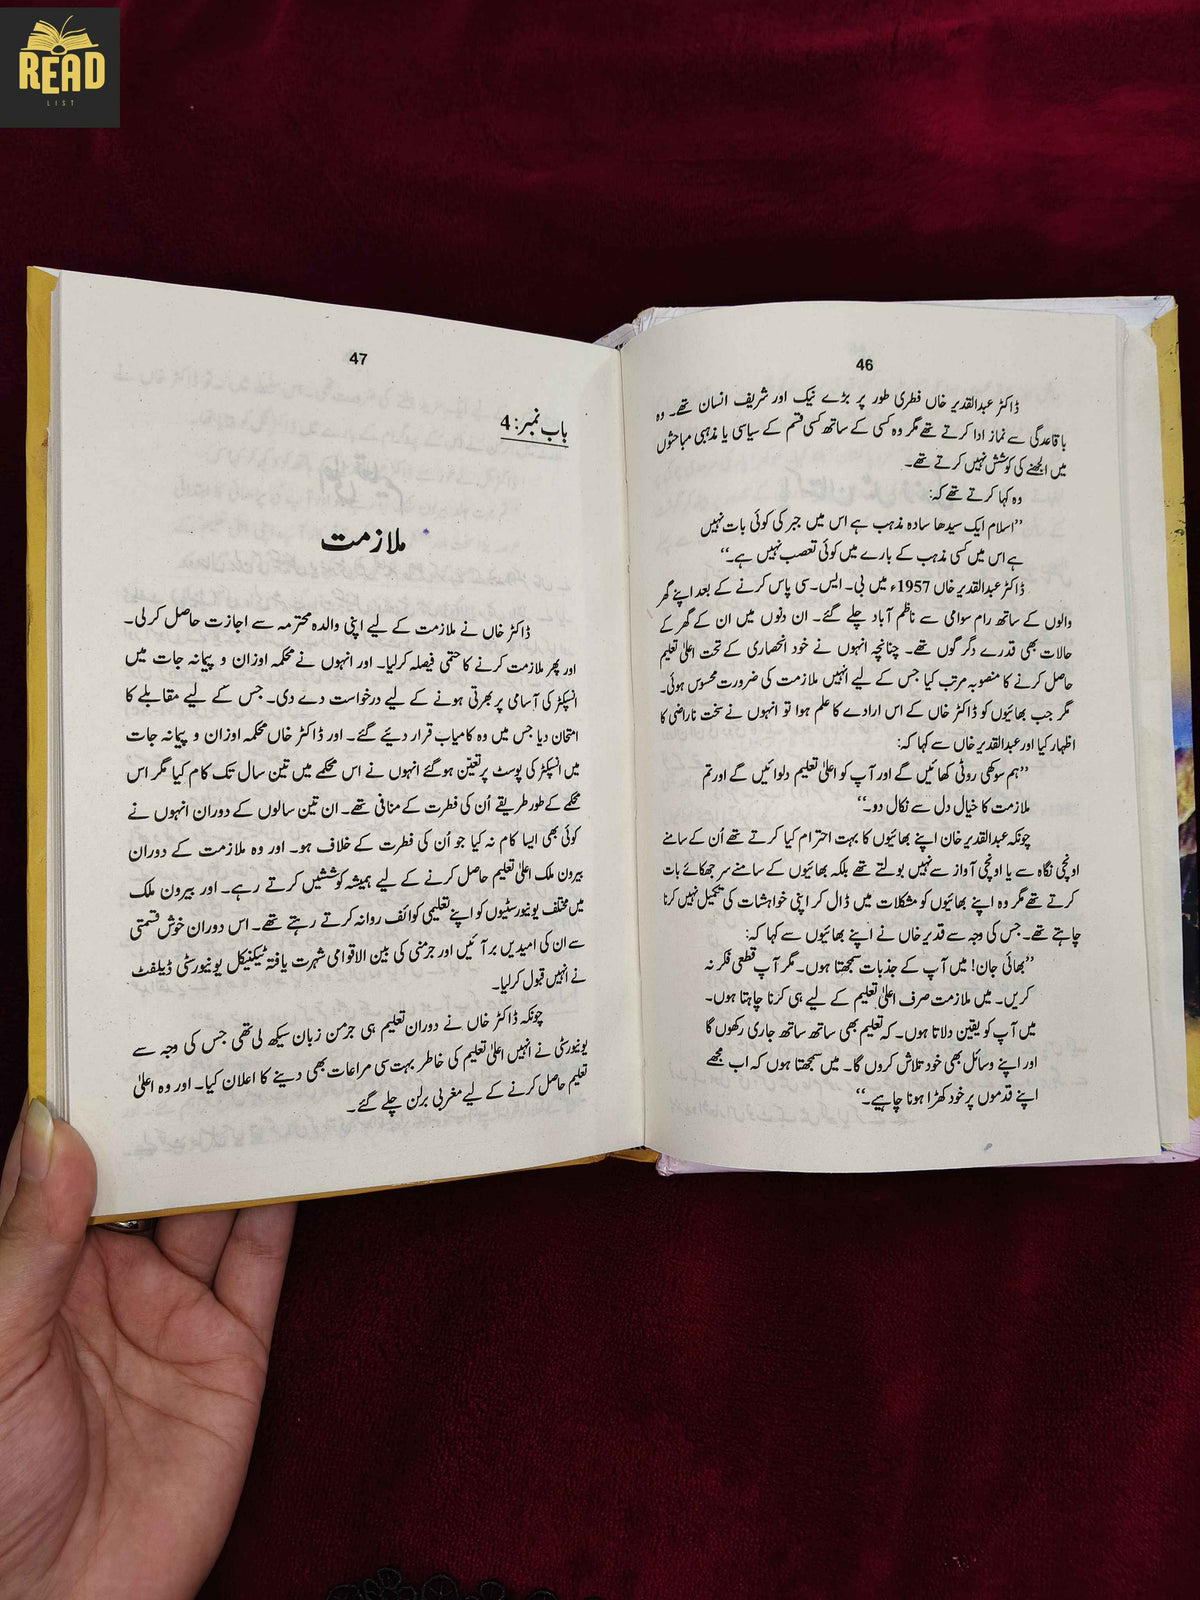 READ
LIST
46
ڈاکٹر عبدالقدیر خاں فطری طور پر بڑے نیک اور شریف انسان تھے۔ وہ
باقاعدگی سے نماز ادا کرتے تھے مگر وہ کسی کے ساتھ کسی قسم کے سیاسی یا مذہبی مباحثوں
میں الجھنے کی کوشش نہیں کرتے تھے۔
وہ کہا کرتے تھے کہ:
’’اسلام ایک سیدھا سادہ مذہب ہے اس میں جبر کی کوئی بات نہیں
ہے اس میں کسی مذہب کے بارے میں کوئی تعصب نہیں ہے۔‘‘
ڈاکٹر عبدالقدیر خاں 1957ء میں بی۔ ایس۔ سی پاس کرنے کے بعد اپنے گھر
والوں کے ساتھ رام سوامی سے ناظم آباد چلے گئے۔ ان دنوں میں ان کے گھر کے
حالات بھی قدرے دگرگوں تھے۔ چنانچہ انہوں نے خود انحصاری کے تحت اعلیٰ تعلیم
حاصل کرنے کا منصوبہ مرتب کیا جس کے لیے انہیں ملازمت کی ضرورت محسوس ہوئی۔
مگر جب بھائیوں کو ڈاکٹر خاں کے اس ارادے کا علم ہوا تو انہوں نے سخت ناراضی کا
اظہار کیا اور عبدالقدیر خاں سے کہا کہ:
’’ہم سوکھی روٹی کھائیں گے اور آپ کو اعلیٰ تعلیم دلوائیں گے اور تم
ملازمت کا خیال دل سے نکال دو۔‘‘
چونکہ عبدالقدیر خان اپنے بھائیوں کا بہت احترام کیا کرتے تھے اُن کے سامنے
اونچی نگاہ سے یا اونچی آواز سے نہیں بولتے تھے بلکہ بھائیوں کے سامنے سر جھکائے بات
کرتے تھے مگر وہ اپنے بھائیوں کو مشکلات میں ڈال کر اپنی خواہشات کی تکمیل نہیں کرنا
چاہتے تھے۔ جس کی وجہ سے قدیر خاں نے اپنے بھائیوں سے کہا کہ:
’’بھائی جان! میں آپ کے جذبات سمجھتا ہوں۔ مگر آپ قطعی فکر نہ
کریں۔ میں ملازمت صرف اعلیٰ تعلیم کے لیے ہی کرنا چاہتا ہوں۔
میں آپ کو یقین دلاتا ہوں۔ کہ تعلیم بھی ساتھ ساتھ جاری رکھوں گا
اور اپنے وسائل بھی خود تلاش کروں گا۔ میں سمجھتا ہوں کہ اب مجھے
اپنے قدموں پر خود کھڑا ہونا چاہیے۔‘‘
47
باب نمبر: 4
ملازمت
ڈاکٹر خاں نے ملازمت کے لیے اپنی والدہ محترمہ سے اجازت حاصل کرلی۔
اور پھر ملازمت کرنے کا حتمی فیصلہ کرلیا۔ اور انہوں نے محکمہ اوزان و پیمانہ جات میں
انسپکٹر کی آسامی پر بھرتی ہونے کے لیے درخواست دے دی۔ جس کے لیے مقابلے کا
امتحان دیا جس میں وہ کامیاب قرار دیئے گئے۔ اور ڈاکٹر خاں محکمہ اوزان و پیمانہ جات
میں انسپکٹر کی پوسٹ پر تعین ہوگئے انہوں نے اس محکمے میں تین سال تک کام کیا مگر اس
محکمے کے طور طریقے اُن کی فطرت کے منافی تھے۔ ان تین سالوں کے دوران انہوں نے
کوئی بھی ایسا کام نہ کیا جو اُن کی فطرت کے خلاف ہو۔ اور وہ ملازمت کے دوران
بیرون ملک اعلیٰ تعلیم حاصل کرنے کے لیے ہمیشہ کوششیں کرتے رہے۔ اور بیرون ملک
میں مختلف یونیورسٹیوں کو اپنے تعلیمی کوائف روانہ کرتے رہتے تھے۔ اس دوران خوش قسمتی
سے ان کی امیدیں بر آئیں اور جرمنی کی بین الاقوامی شہرت یافتہ ٹیکنیکل یونیورسٹی ڈیلفٹ
نے انہیں قبول کرلیا۔
چونکہ ڈاکٹر خاں نے دوران تعلیم ہی جرمن زبان سیکھ لی تھی جس کی وجہ سے
یونیورسٹی نے انہیں اعلیٰ تعلیم کی خاطر بہت سی مراعات بھی دینے کا اعلان کیا۔ اور وہ اعلیٰ
تعلیم حاصل کرنے کے لیے مغربی برلن چلے گئے۔